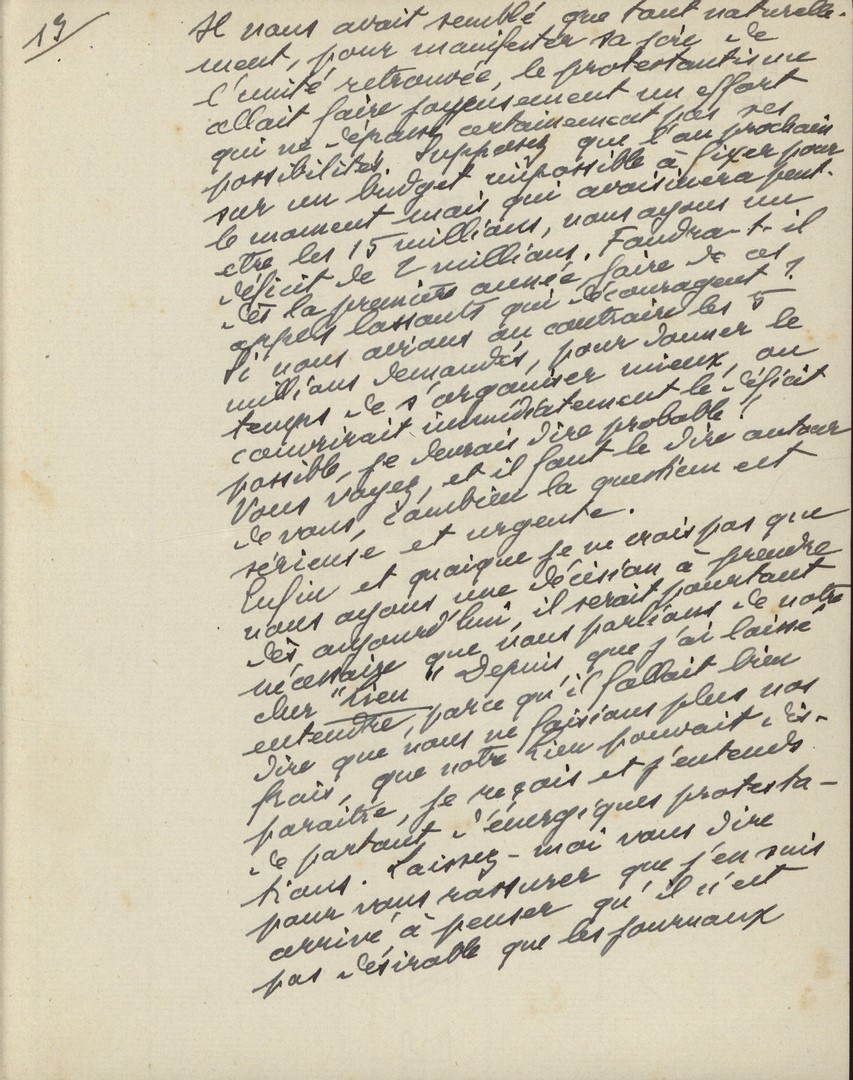 19
Il nous avait semblé que tout naturelle-
ment, pour manifester sa joie de
l'unité retrouvée, le protestantisme
allait faire joyeusement un effort
qui ne dépasse certainement pas ses
possibilités. Supposez que l'an prochain
sur un budget impossible à fixer pour
le moment mais qui avoisinera peut-
etre les 15 millions, nous ayons un
déficit de 2 millions. Faudra-t-il
dès la première année faire de ces
appels lassants qui découragent ?
Si nous avions au contraire les 5
millions demandés, pour donner le
temps de s'organiser mieux, on
couvrirait immédiatement le déficit
possible, je devrais dire probable !
Vous voyez, et il faut le dire autour
de vous, combien la question est
sérieuse et urgente.
Enfin et quoique je ne crois pas que
nous ayons une décision à prendre
dès aujourd'hui, il serait pourtant
nécessaire que nous parlions de notre
cher "Lien". Depuis que j'ai laissé
entendre, parce qu'il fallait bien
dire que nous ne faisions plus nos
frais, que notre Lien pouvait dis-
paraître, je reçois et j'entends
de partout d'énergiques protesta-
tions. Laissez-moi vous dire
pour vous rassurer que j'en suis
arrivé à penser qu'il n'est
pas désirable que les journaux